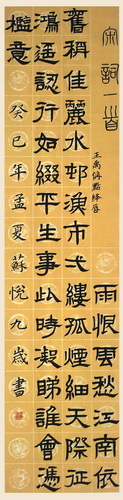 宋詞一首
王禹偁點絳唇
雨恨雲愁江南依
舊稱佳麗水邨漁市弌縷孤煙細天際征
鴻遙認行如綴平生事此時凝睇誰會憑
檻意
癸巳年孟夏蘇悅九歲書